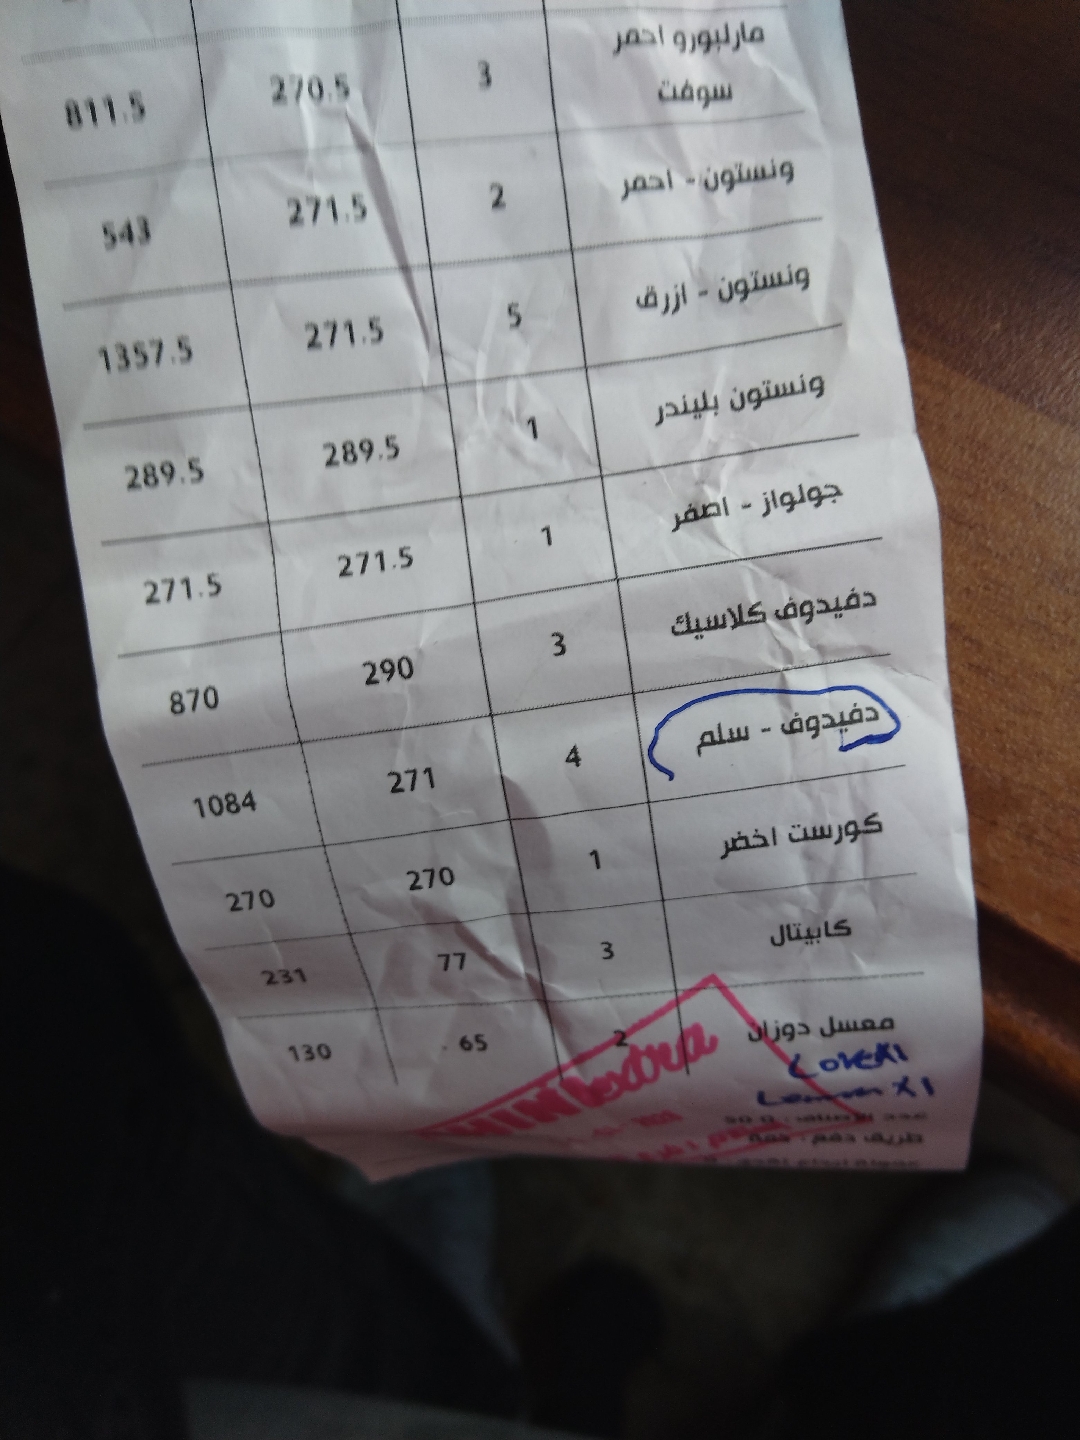 مارلبورو احمر
سوفت 3 270.5 811.5
ونستون - احمر 2 271.5 543
ونستون - ازرق 5 271.5 1357.5
ونستون بليندر 1 289.5 289.5
جولواز - اصفر 1 271.5 271.5
دفيدوف كلاسيك 3 290 870
دفيدوف - سلم 4 271 1084
كورست اخضر 1 270 270
كابيتال 3 77 231
معسل دوزان 2 65 130
extra